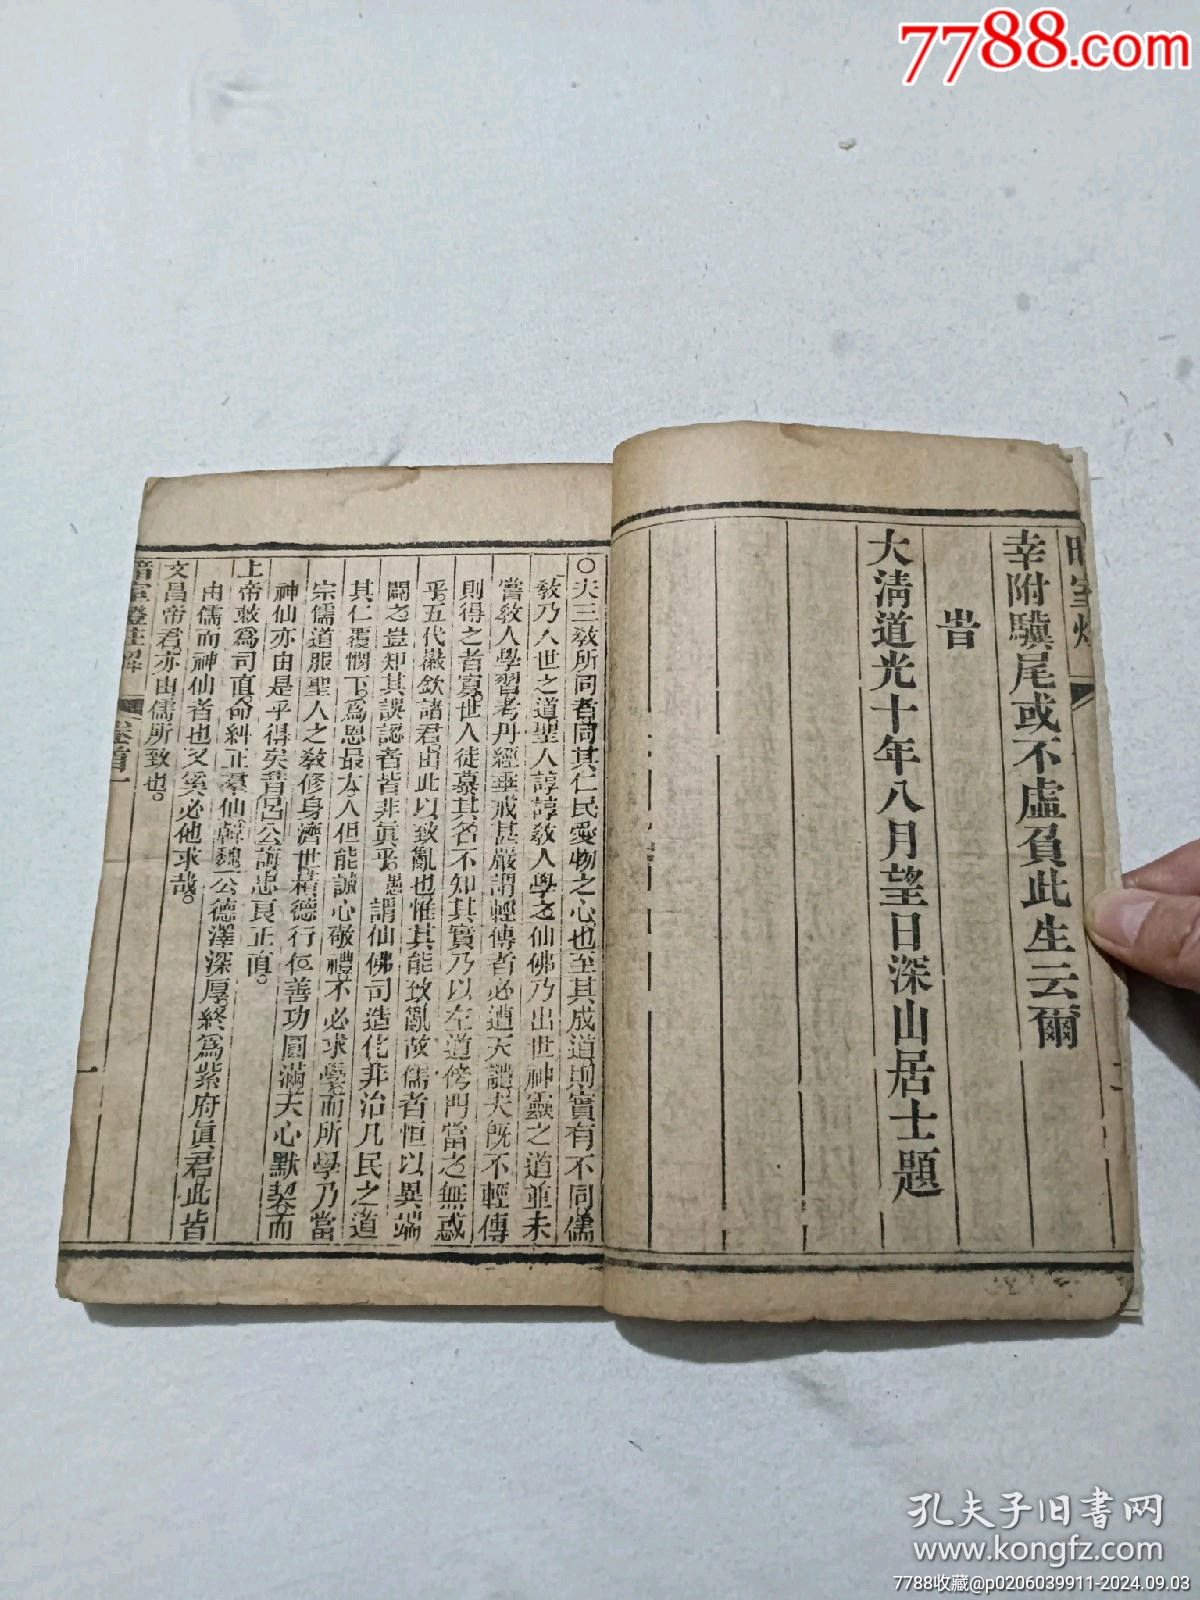 7788.com
暗室燈
二
幸附驥尾或不虛負此生云爾
旹
大清道光十年八月望日深山居士題
○夫三敎所同者同其仁民愛物之心也至其成道則實有不同儒
敎乃入世之道聖人諄諄敎人學之仙佛乃出世神靈之道並未
嘗敎人學習考丹經垂戒甚嚴謂輕傳者必遭天譴夫旣不輕傳
則得之者寡世人徒慕其名不知其實乃以左道傍門當之無惑
乎五代徽欽諸君由此以致亂也惟其能致亂故儒者恒以異端
闢之豈知其誤認者皆非眞乎愚謂仙佛司造化非治凡民之道
其仁覆憫下爲恩最大人但能誠心敬禮不必求學而所學乃當
宗儒道服聖人之敎修身濟世積德行仁善功圓滿天心默契而
神仙亦由是乎得矣昔呂公誨忠良正直
上帝敕爲司直命糾正羣仙韓魏公德澤深厚終爲紫府眞君此皆
由儒而神仙者也又奚必他求哉
文昌帝君亦由儒所致也
暗室燈註解 卷首 一
一
孔夫子旧书网
www.kongfz.com
7788收藏@p0206039911-2024.09.03